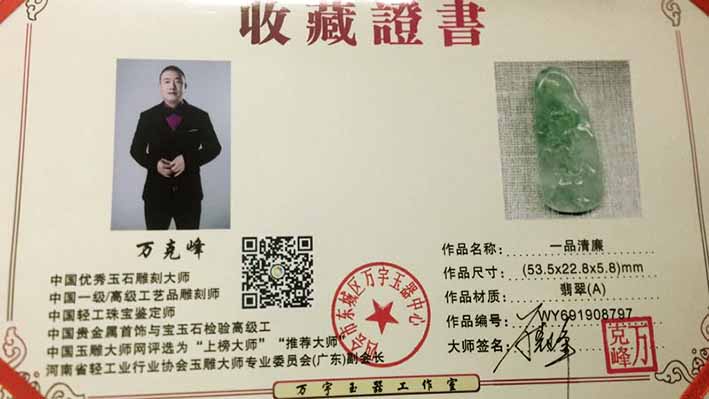 收藏證書
万克峰
中国优秀玉石雕刻大师
中国一级/高级工艺品雕刻师
中国轻工珠宝鉴定师
中国贵金属首饰与宝玉石检验高级工
中国玉雕大师网评选为“上榜大师”“推荐大师”
河南省轻工业行业协会玉雕大师专业委员会(广东)副会长
作品名称: 一品清廉
作品尺寸: (53.5x22.8x5.8)mm
作品材质: 翡翠(A)
作品编号: WY691908797
大师签名:
万克峰
市东城区万宇玉器中心
万宇玉器工作室